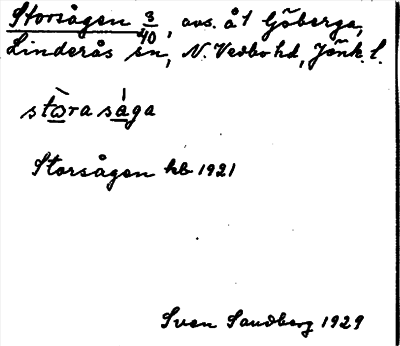 Storsågen 3/40, avs. å 1 Göberga,
Linderås sn, N. Vedbo hd, Jönk. l.
stɷ̀ra sága
Storsågen kb 1921
Sven Sandberg 1929